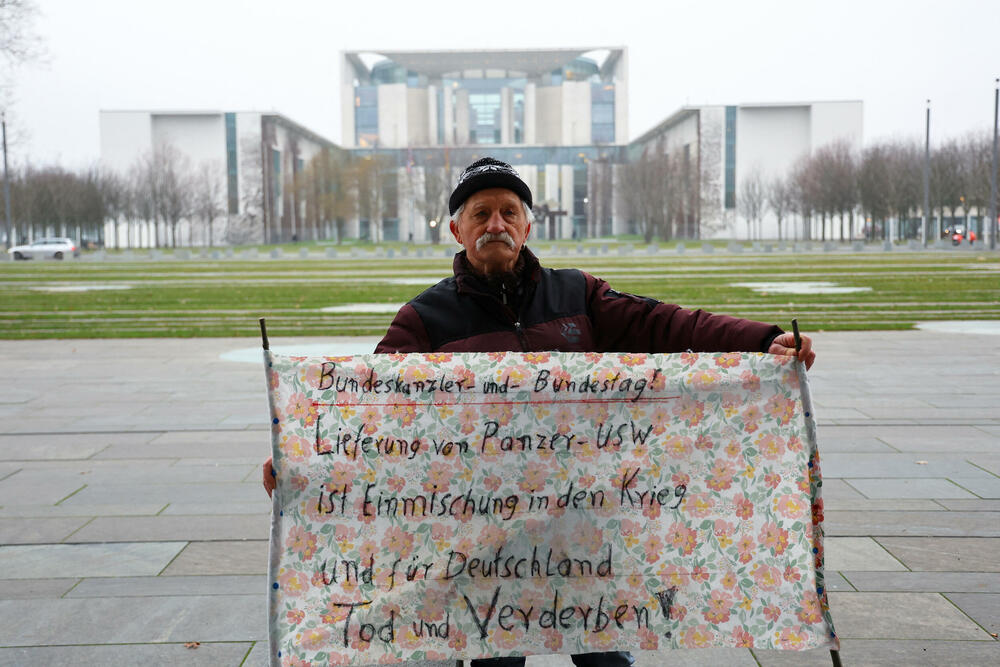 Bundeskanzler-und-Bundestag!
Lieferung von Panzer-USW
ist Einmischung in den Krieg
und für Deutschland
Tod und Verderben!